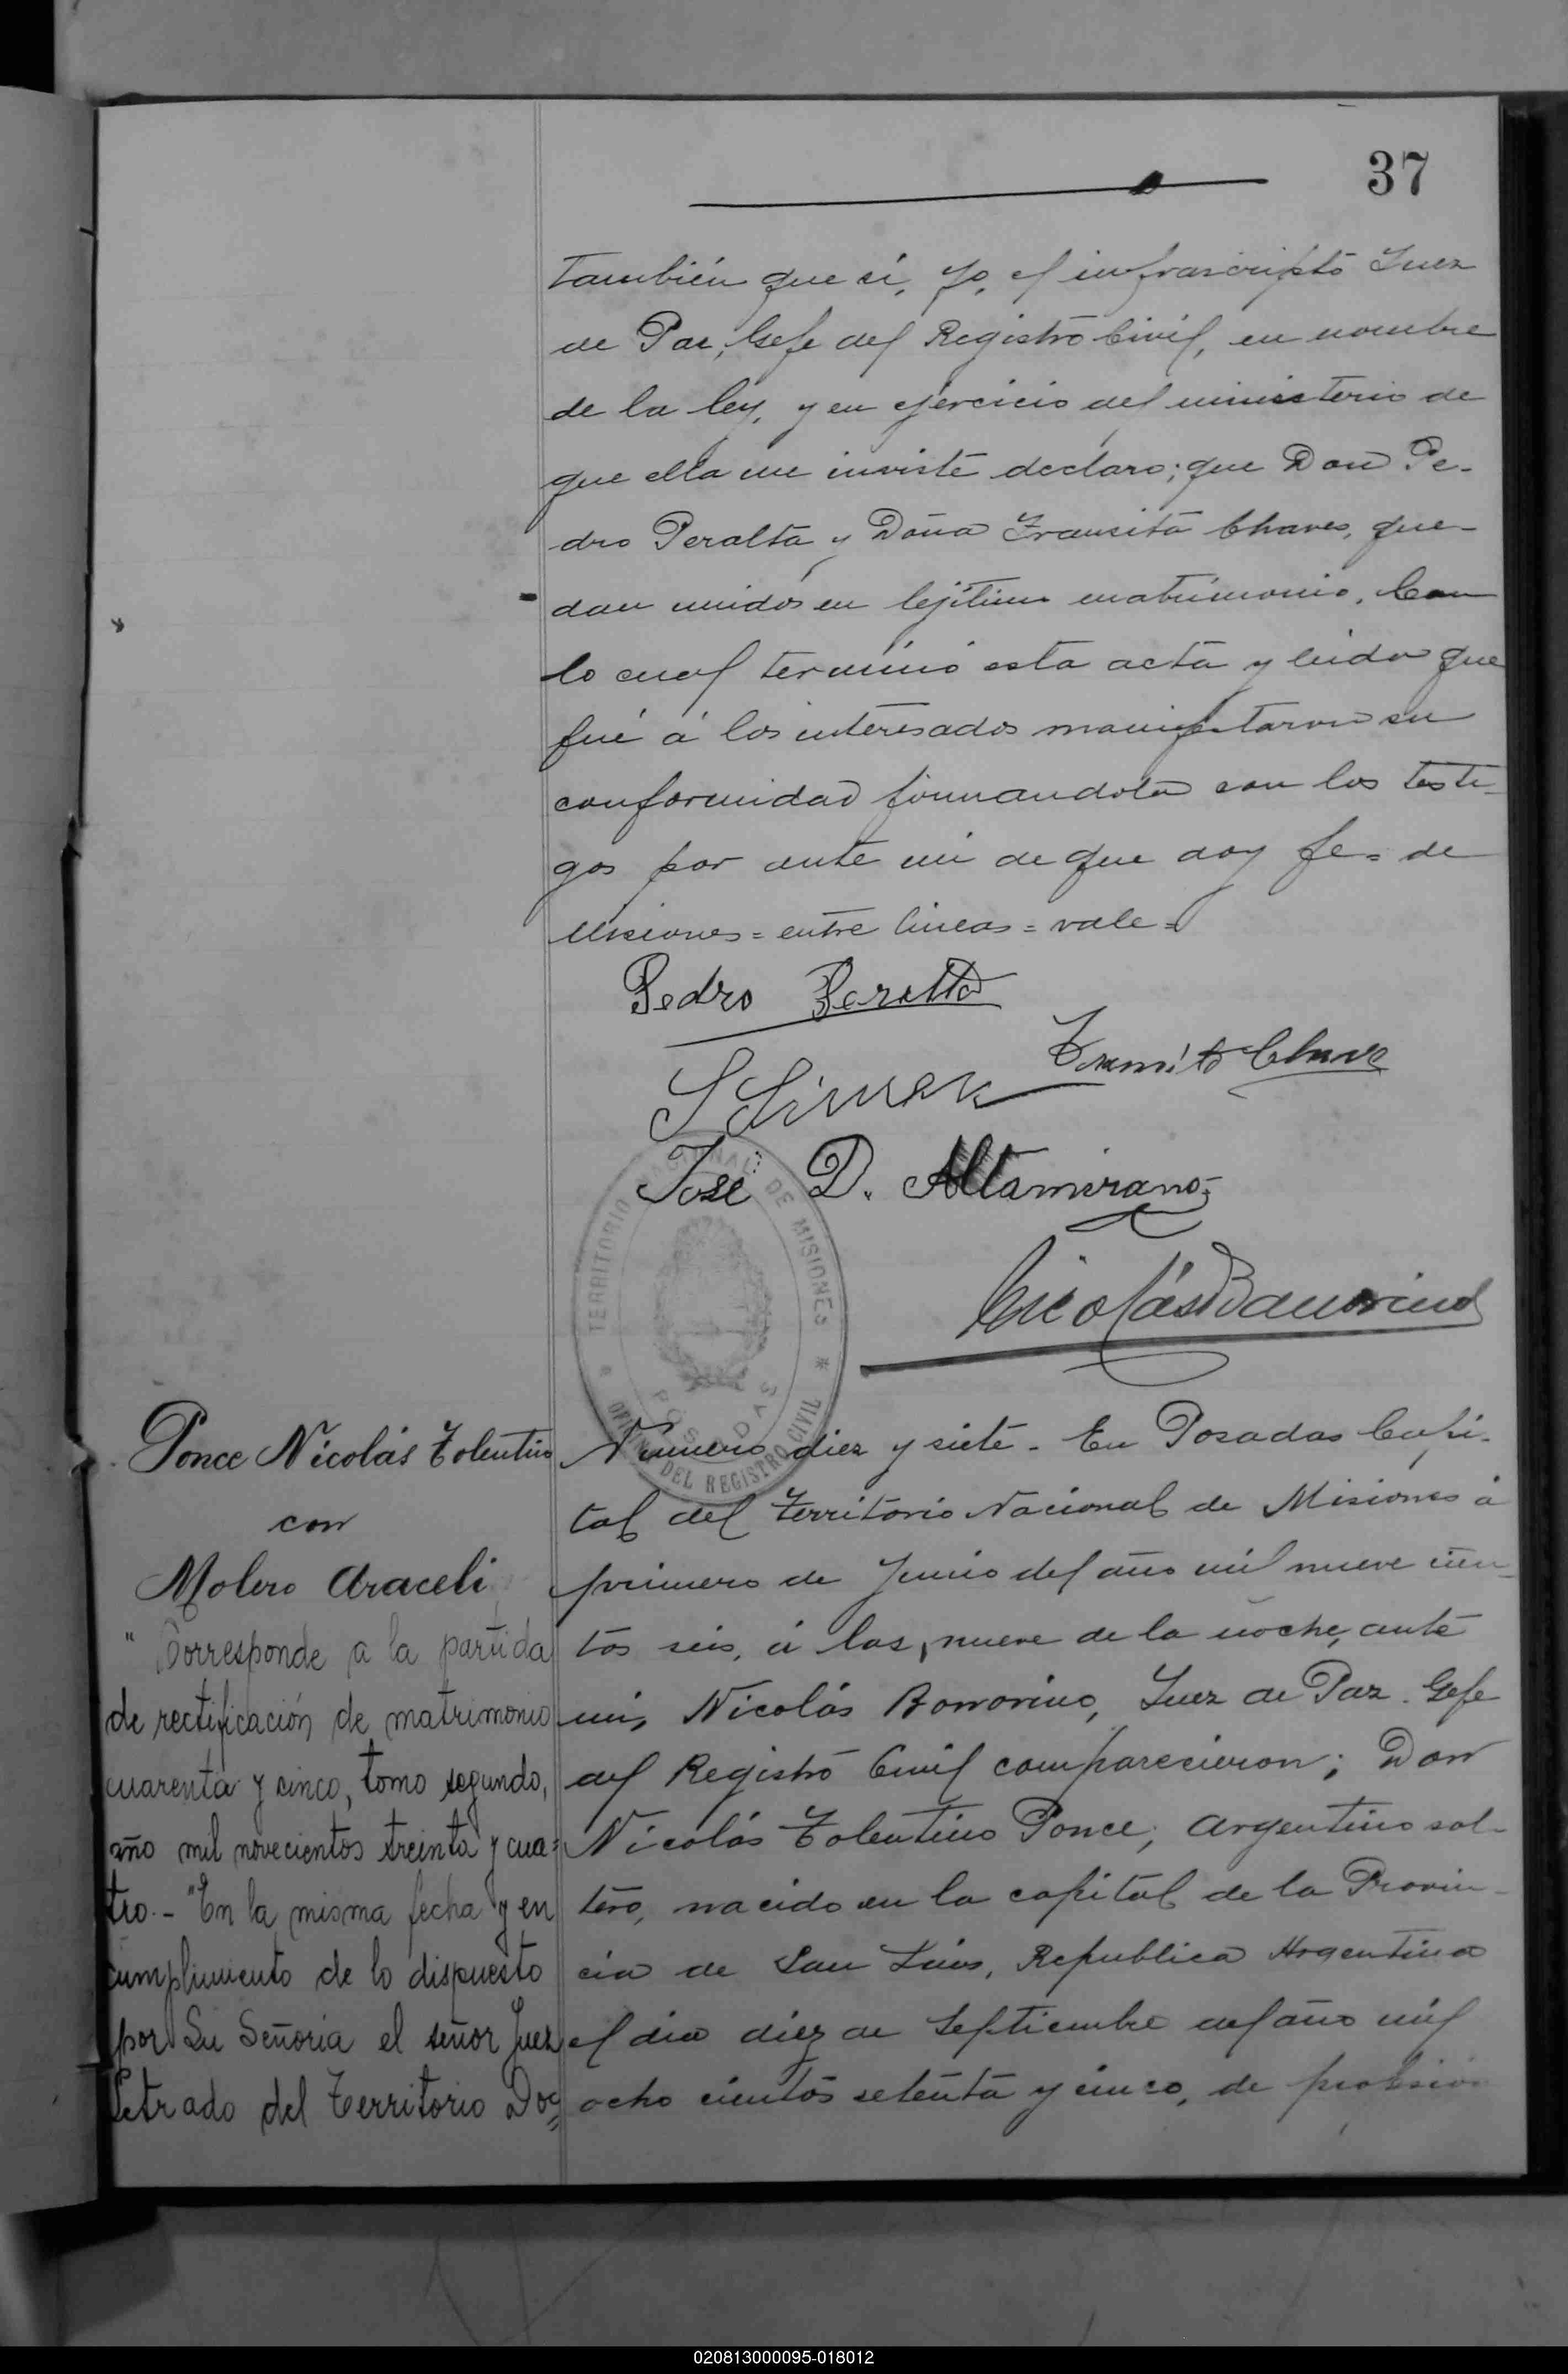 37
también que si, Yo, el infrascripto Juez
de Paz, Gefe del Registro Civil, en nombre
de la ley, y en ejercicio del ministerio de
que ella me inviste declaro; que Don Pe-
dro Peralta y Doña Transita Chaves, que-
dan unidos en lejitimo matrimonio. Con
lo cual terminó esta acta y leida que
fué á los interesados manifestaron su
conformidad firmandola con los testi-
gos por ante mi de que doy fe = de
Misiones = entre lineas = vale =
Pedro Peralta
Transito Chave
José D. Altamirano
Nicolás Bonorino
TERRITORIO NACIONAL DE MISIONES
POSADAS
OFICINA DEL REGISTRO CIVIL
Ponce Nicolás Tolentino
con
Molero Araceli
"Corresponde a la partida
de rectificación de matrimonio
cuarenta y cinco, tomo segundo,
año mil novecientos treinta y cua=
tro.- "En la misma fecha y en
cumplimiento de lo dispuesto
por Su Señoria el señor Juez
Letrado del Territorio Doc=
Numero diez y siete - En Posadas Capi-
tal del Territorio Nacional de Misiones á
primero de Junio del año mil nueve cien-
tos seis, á las, nueve de la noche, ante
mi, Nicolás Bonorino, Juez de Paz. Gefe
del Registro Civil comparecieron; Don
Nicolás Tolentino Ponce, Argentino sol-
tero, nacido en la capital de la Provin-
cia de San Luis, Republica Argentina
el dia diez de Septiembre del año mil
ocho cientos setenta y cinco, de profesion
020813000095-018012